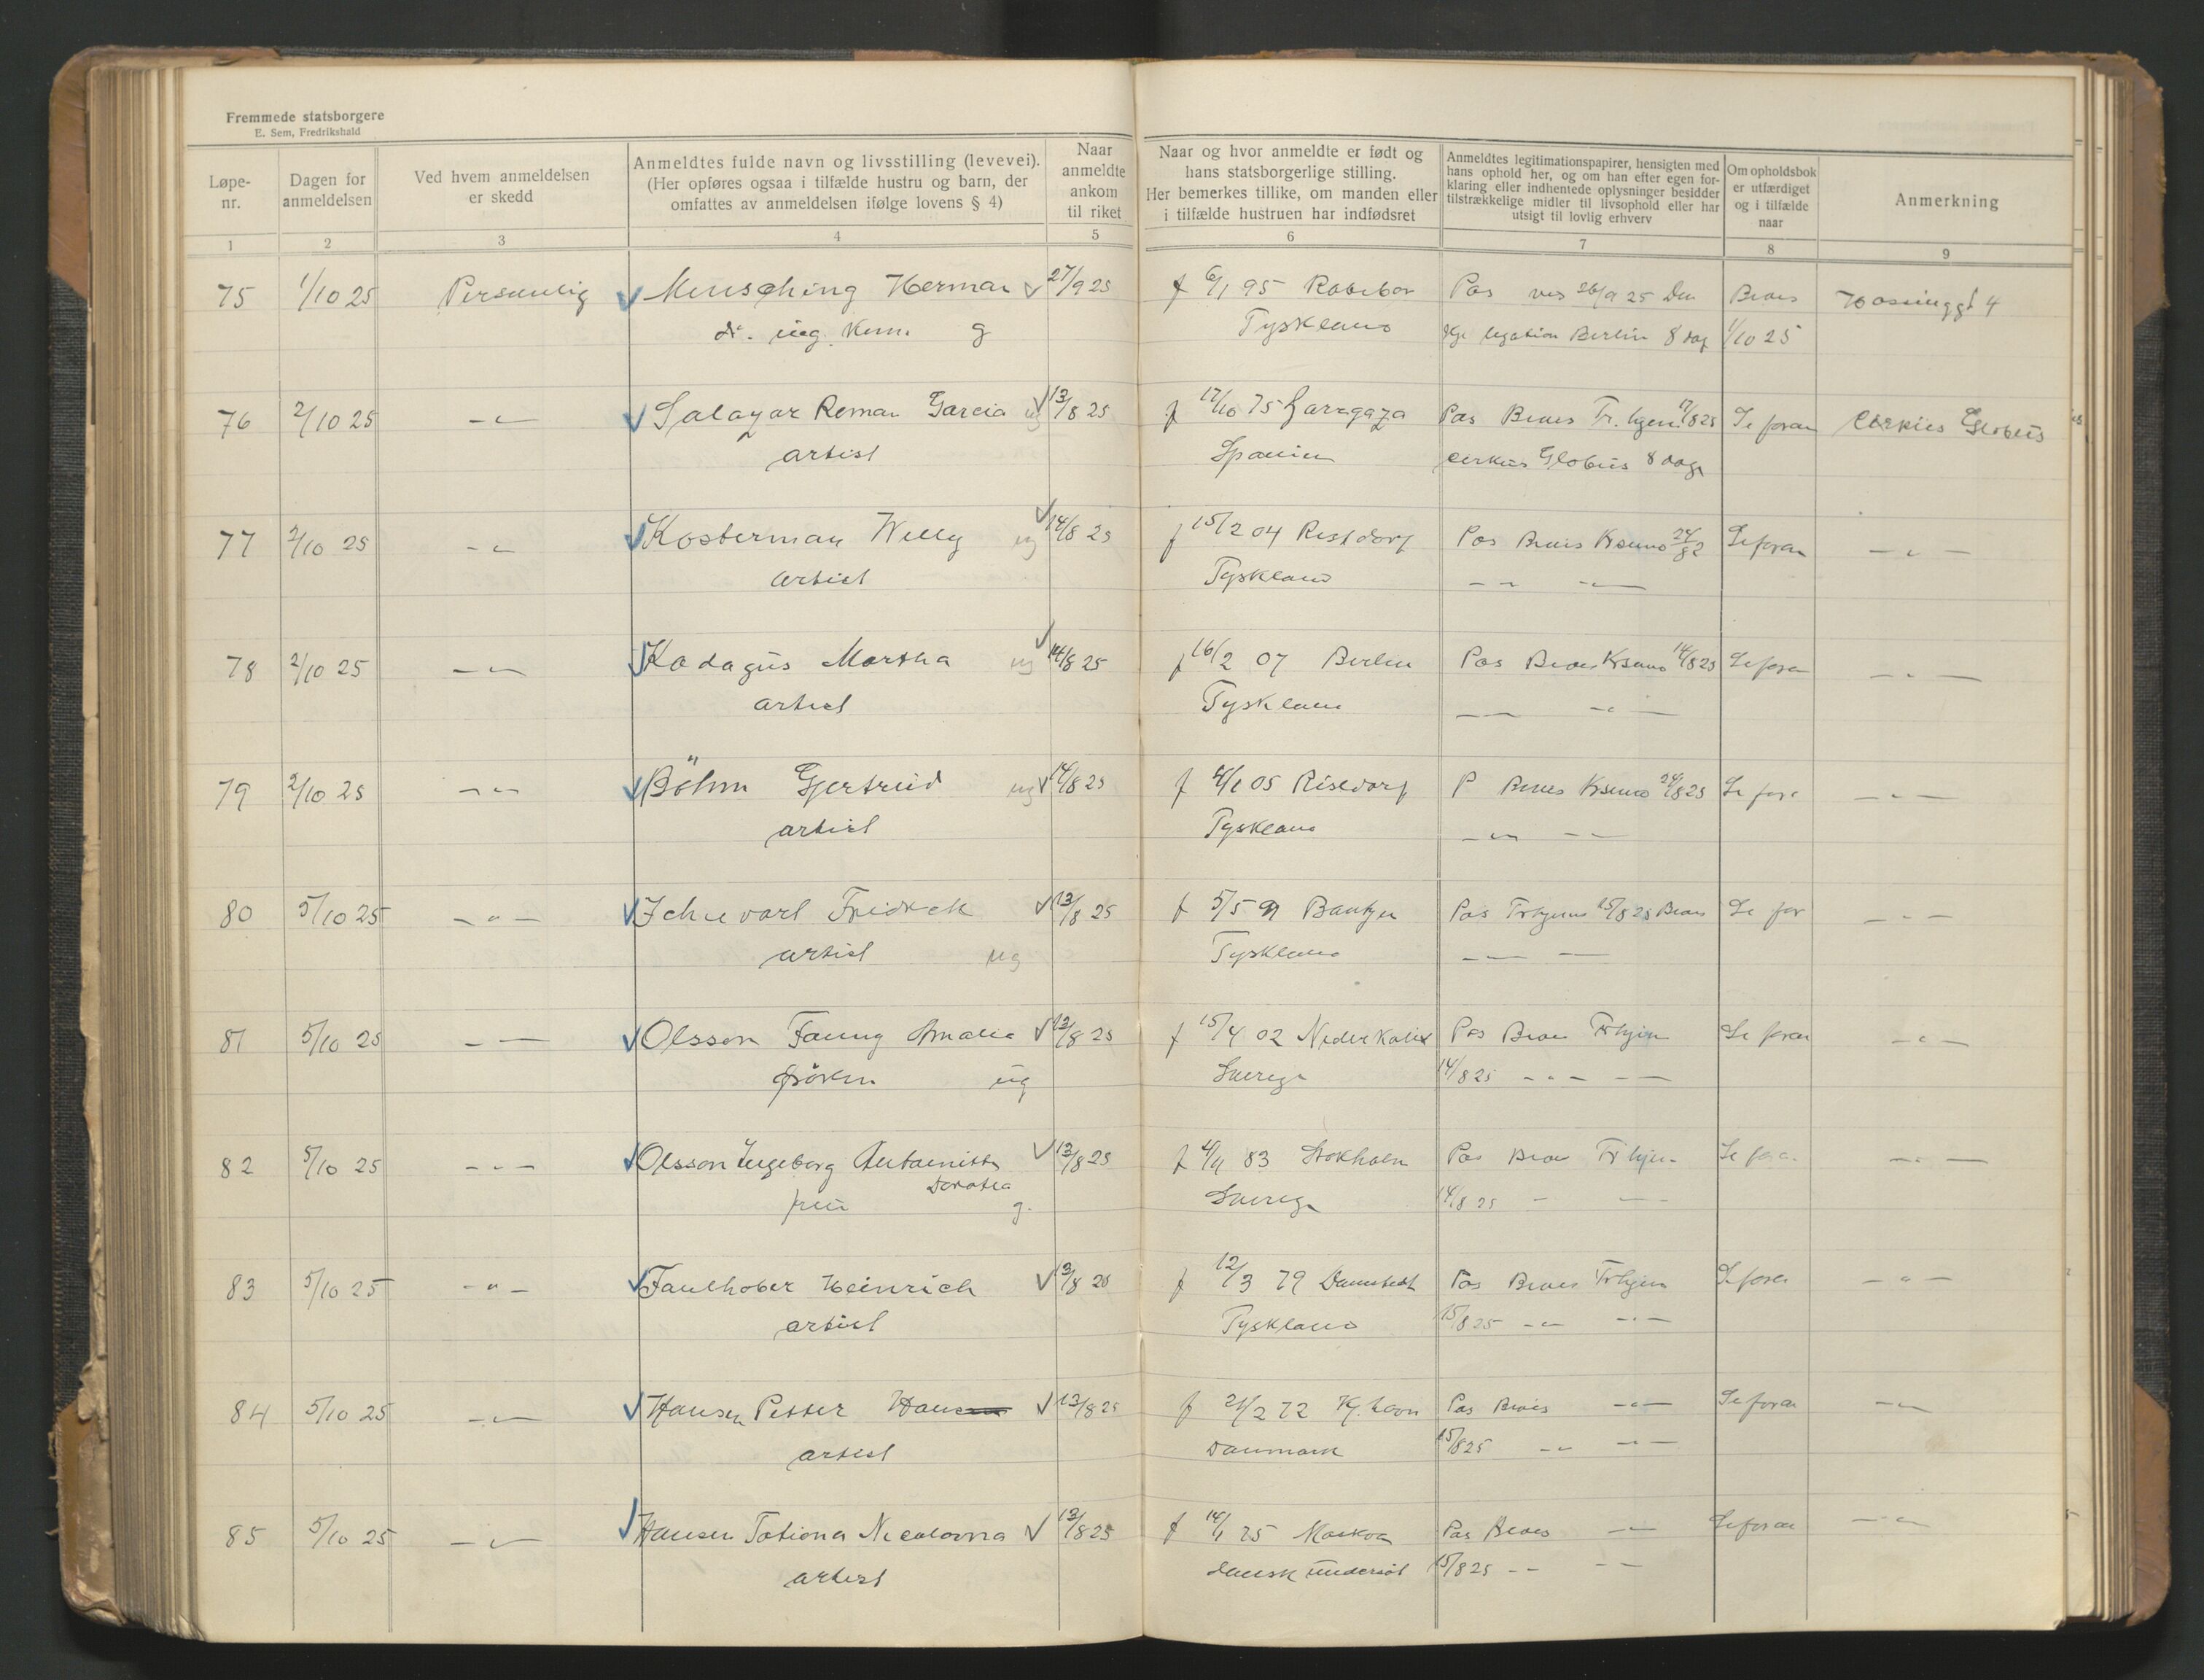 Fremmede statsborgere
E. Sem, Fredrikshald
Løpe-
nr.
Dagen for
anmeldelsen
Ved hvem anmeldelsen
er skedd
Anmeldtes fulde navn og livsstilling (levevei).
(Her opføres ogsaa i tilfælde hustru og barn, der
omfattes av anmeldelsen ifølge lovens § 4)
Naar
anmeldte
ankom
til riket
Naar og hvor anmeldte er født og
hans statsborgerlige stilling.
Her bemerkes tillike, om manden eller
i tilfælde hustruen har indfødsret
Anmeldtes legitimationspapirer, hensigten med
hans ophold her, og om han efter egen for-
klaring eller indhentede oplysninger besidder
tilstrækkelige midler til livsophold eller har
utsigt til lovlig erhverv
Om opholdsbok
er utfærdiget
og i tilfælde
naar
Anmerkning
1 2 3 4 5 6 7 8 9
75 1/10 25 Personlig Mensching Herman 27/9 25 f 6/1 95 Pas 26/9 25 Den Beves
dr. ing. g Tyskland legation Berlin 8 dag 1/10 25
76 2/10 25 - " - Salazar Roman Garcia ug 13/8 25 f 17/10 75 Zaragaza Pas Beves Tr.hjem 17/8 25 Se foran Cirkus Globus
artist Spanien Cirkus Globus 8 dage
77 2/10 25 - " - Kosterman Willy ug 14/8 25 f 15/2 04 Pas Beves Seforan - " -
artist Tyskland - " - - " -
78 2/10 25 - " - Kadagus Martha ug 14/8 25 f 16/2 07 Berlin Pas Beves 14/8 25 Seforan - " -
artist Tyskland - " - - " -
79 2/10 25 - " - Böhm Gjertrud ug 14/8 25 f 4/1 05 P Beves 24/8 25 Se for - " -
artist Tyskland - " - - " -
80 5/10 25 - " - Fredrek 13/8 25 f 5/5 Bautzen Pas Trhjem 15/8 25 Beves Se for - " -
artist ug Tyskland - " - - " -
81 5/10 25 - " - Olsson Fanny Amalia 13/8 25 f 15/4 02 Nederkalix Pas Beves Trhjem Se foran - " -
frøken ug Sverige 14/8 25 - " - - " -
82 5/10 25 - " - Olsson Ingeborg Antoinitte 13/8 25 f 83 Stokholm Pas Beves Trhjem Se foran - " -
Dorotea
frue g. Sverige 14/8 25 - " -
83 5/10 25 - " - Faulhober Heinrich 13/8 25 f 12/3 79 Pas Beves Trhjem Seforan - " -
artist Tyskland 15/8 25 - " - - " -
84 5/10 25 - " - Hansen Petter 13/8 25 f 21/2 72 Kj.havn Pas Beves - " - Seforan - " -
artist Danmark 15/8 25 - " - - " -
85 5/10 25 - " - Hansen Tatiana Nicolovna 13/8 25 f 14/1 Moskva Pas Beves - " - Seforan - " -
artist dansk undersåt 15/8 25 - " - - " -